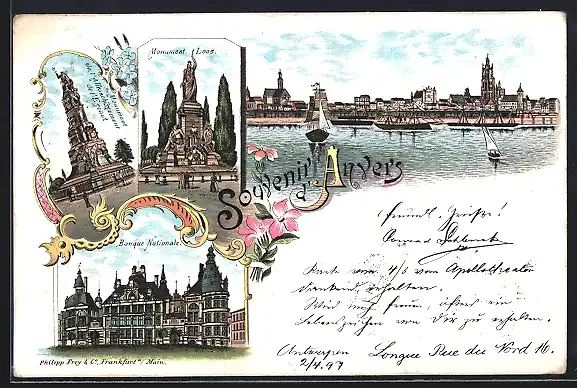 Monument
de l'Affranchissement
de l'Escaut
Monument Loos.
Souvenir
d'Anvers
Banque Nationale.
Freundl. Grüsse!
Karte vom 4/3 vom Apollotheater
dankend erhalten.
Wird mich freuen, öfters ein
Lebenszeichen von Dir zu erhalten.
Antwerpen Longue Rue du Nord 16.
2/4.97
Philipp Frey & Co, Frankfurt a/Main.